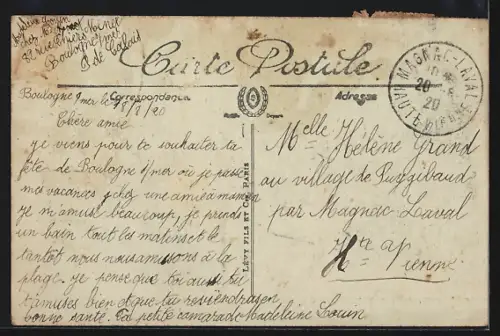 chez Mr
Boulogne s/mer
P. de Calais
Carte Postale
Correspondance
Adresse
MAGNAC-LAVAL
20 - 8
20
HAUTE VIENNE
Boulogne s/mer le 18/8/20
Chère amie
je viens pour te souhaiter ta
fête de Boulogne s/mer où je passe
mes vacances chez une amie à maman
je m'amuse beaucoup, je prends
un bain tout les matins et le
tantôt nous nous amusons à la
plage. je pense que toi aussi tu
t'amuses bien et que tu reviendras en
bonne santé. Ta petite camarade Madeleine Louin
LÉVY FILS ET Cie PARIS
Melle Hélène Grand
au village de Puygibaud
par Magnac Laval
Hte Vienne